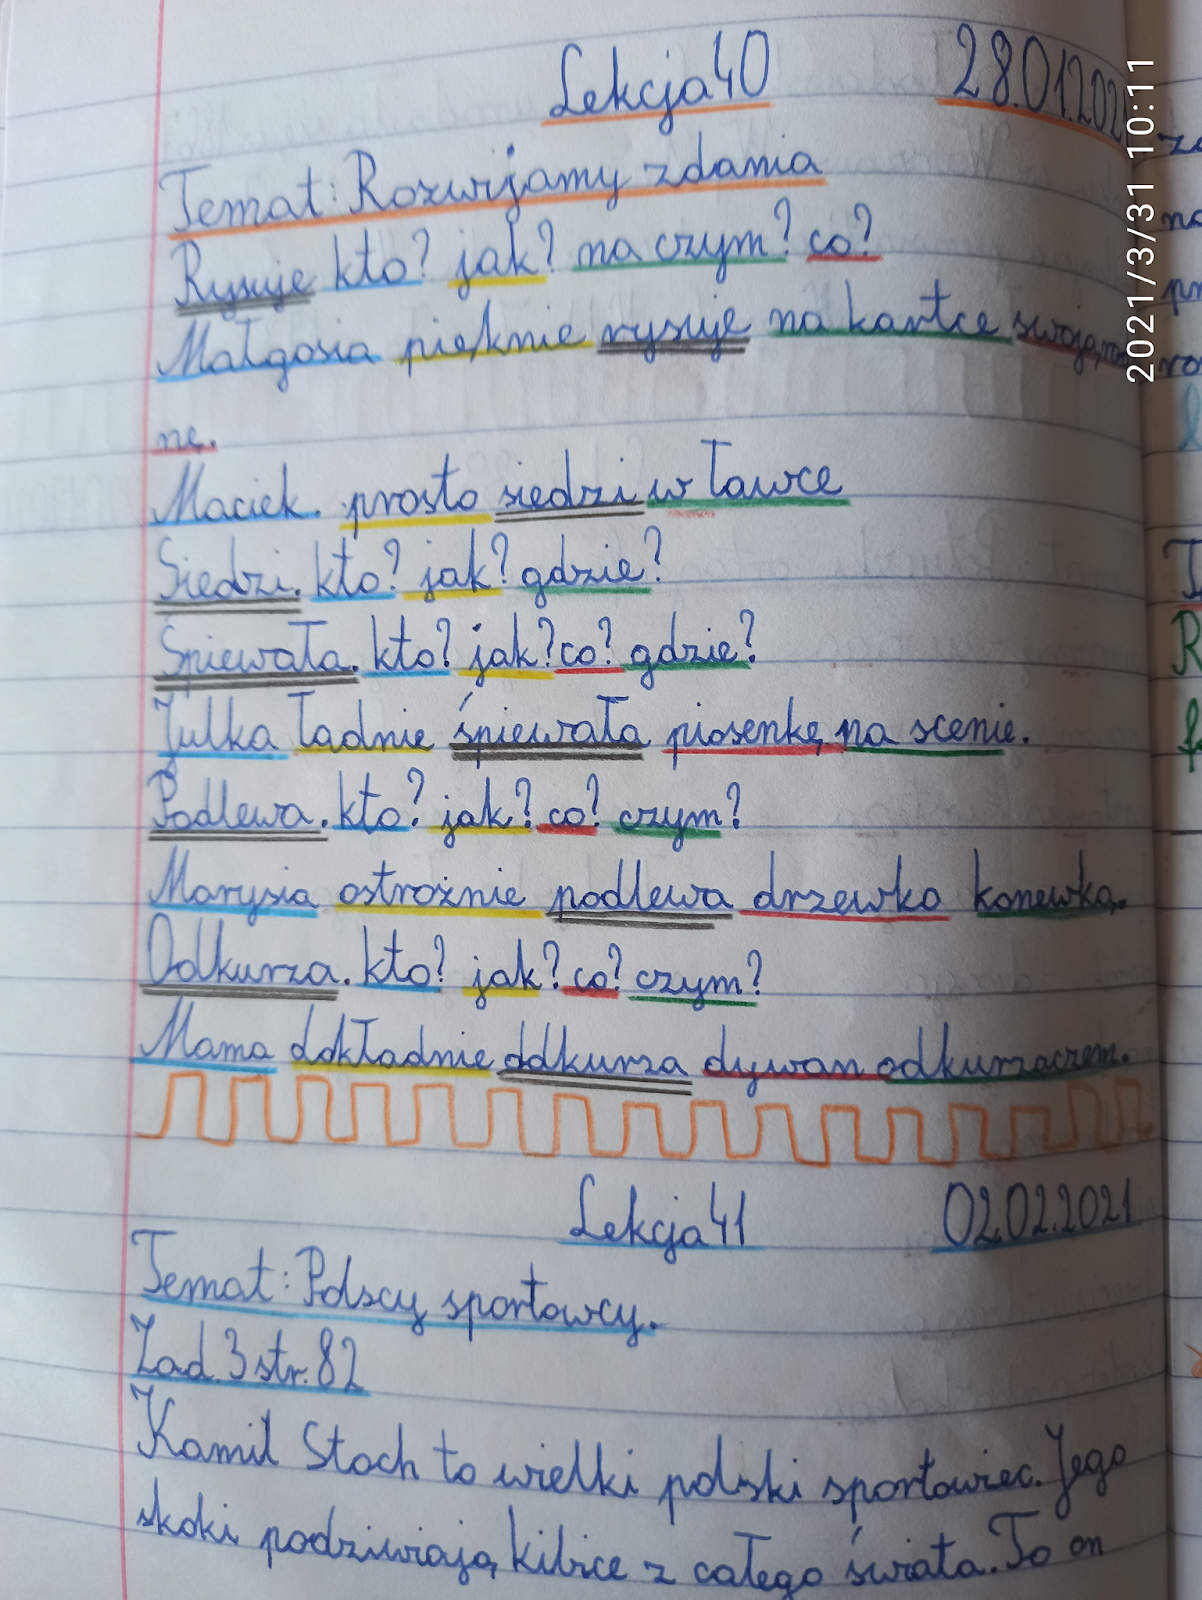 Lekcja 40 28.01.202
Temat: Rozwijamy zdania
Rysuje kto? jak? na czym? co?
Małgosia pięknie rysuje na kartce swoją
nę.
Maciek. prosto siedzi w ławce
Siedzi. kto? jak? gdzie?
Śpiewała. kto? jak? co? gdzie?
Julka ładnie śpiewała piosenkę na scenie.
Podlewa. kto? jak? co? czym?
Marysia ostrożnie podlewa drzewko konewką.
Odkurza. kto? jak? co? czym?
Mama dokładnie odkurza dywan odkurzaczem.
Lekcja 41 02.02.2021
Temat: Polscy sportowcy.
Zad. 3 str. 82
Kamil Stoch to wielki polski sportowiec. Jego
skoki podziwiają kibice z całego świata. To on
2021/3/31 10:11